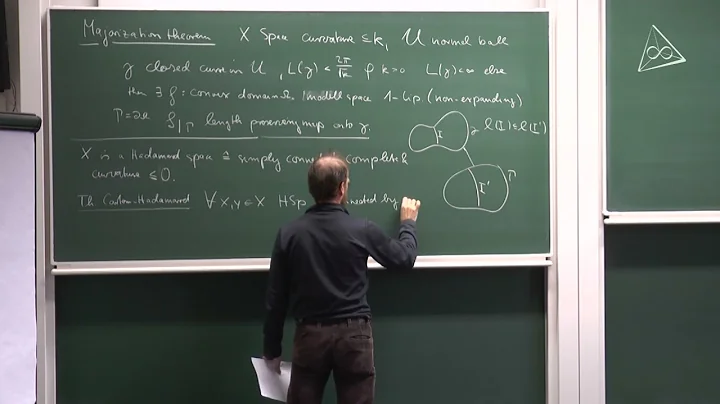 Majorization theorem X space curvature ≤ k, U normal ball
γ closed curve in U, L(γ) < 2π/√k if k>0 L(γ)<∞ else
then ∃ f: convex domain in model space 1-Lip. (non-expanding)
Γ=∂ f|Γ length preserving map onto γ.
I γ l(I) ≤ l(I')
I' Γ
X is a Hadamard space ≅ simply complete &
curvature ≤ 0.
Th Cartan-Hadamard ∀ x,y ∈ X HSp by
∞